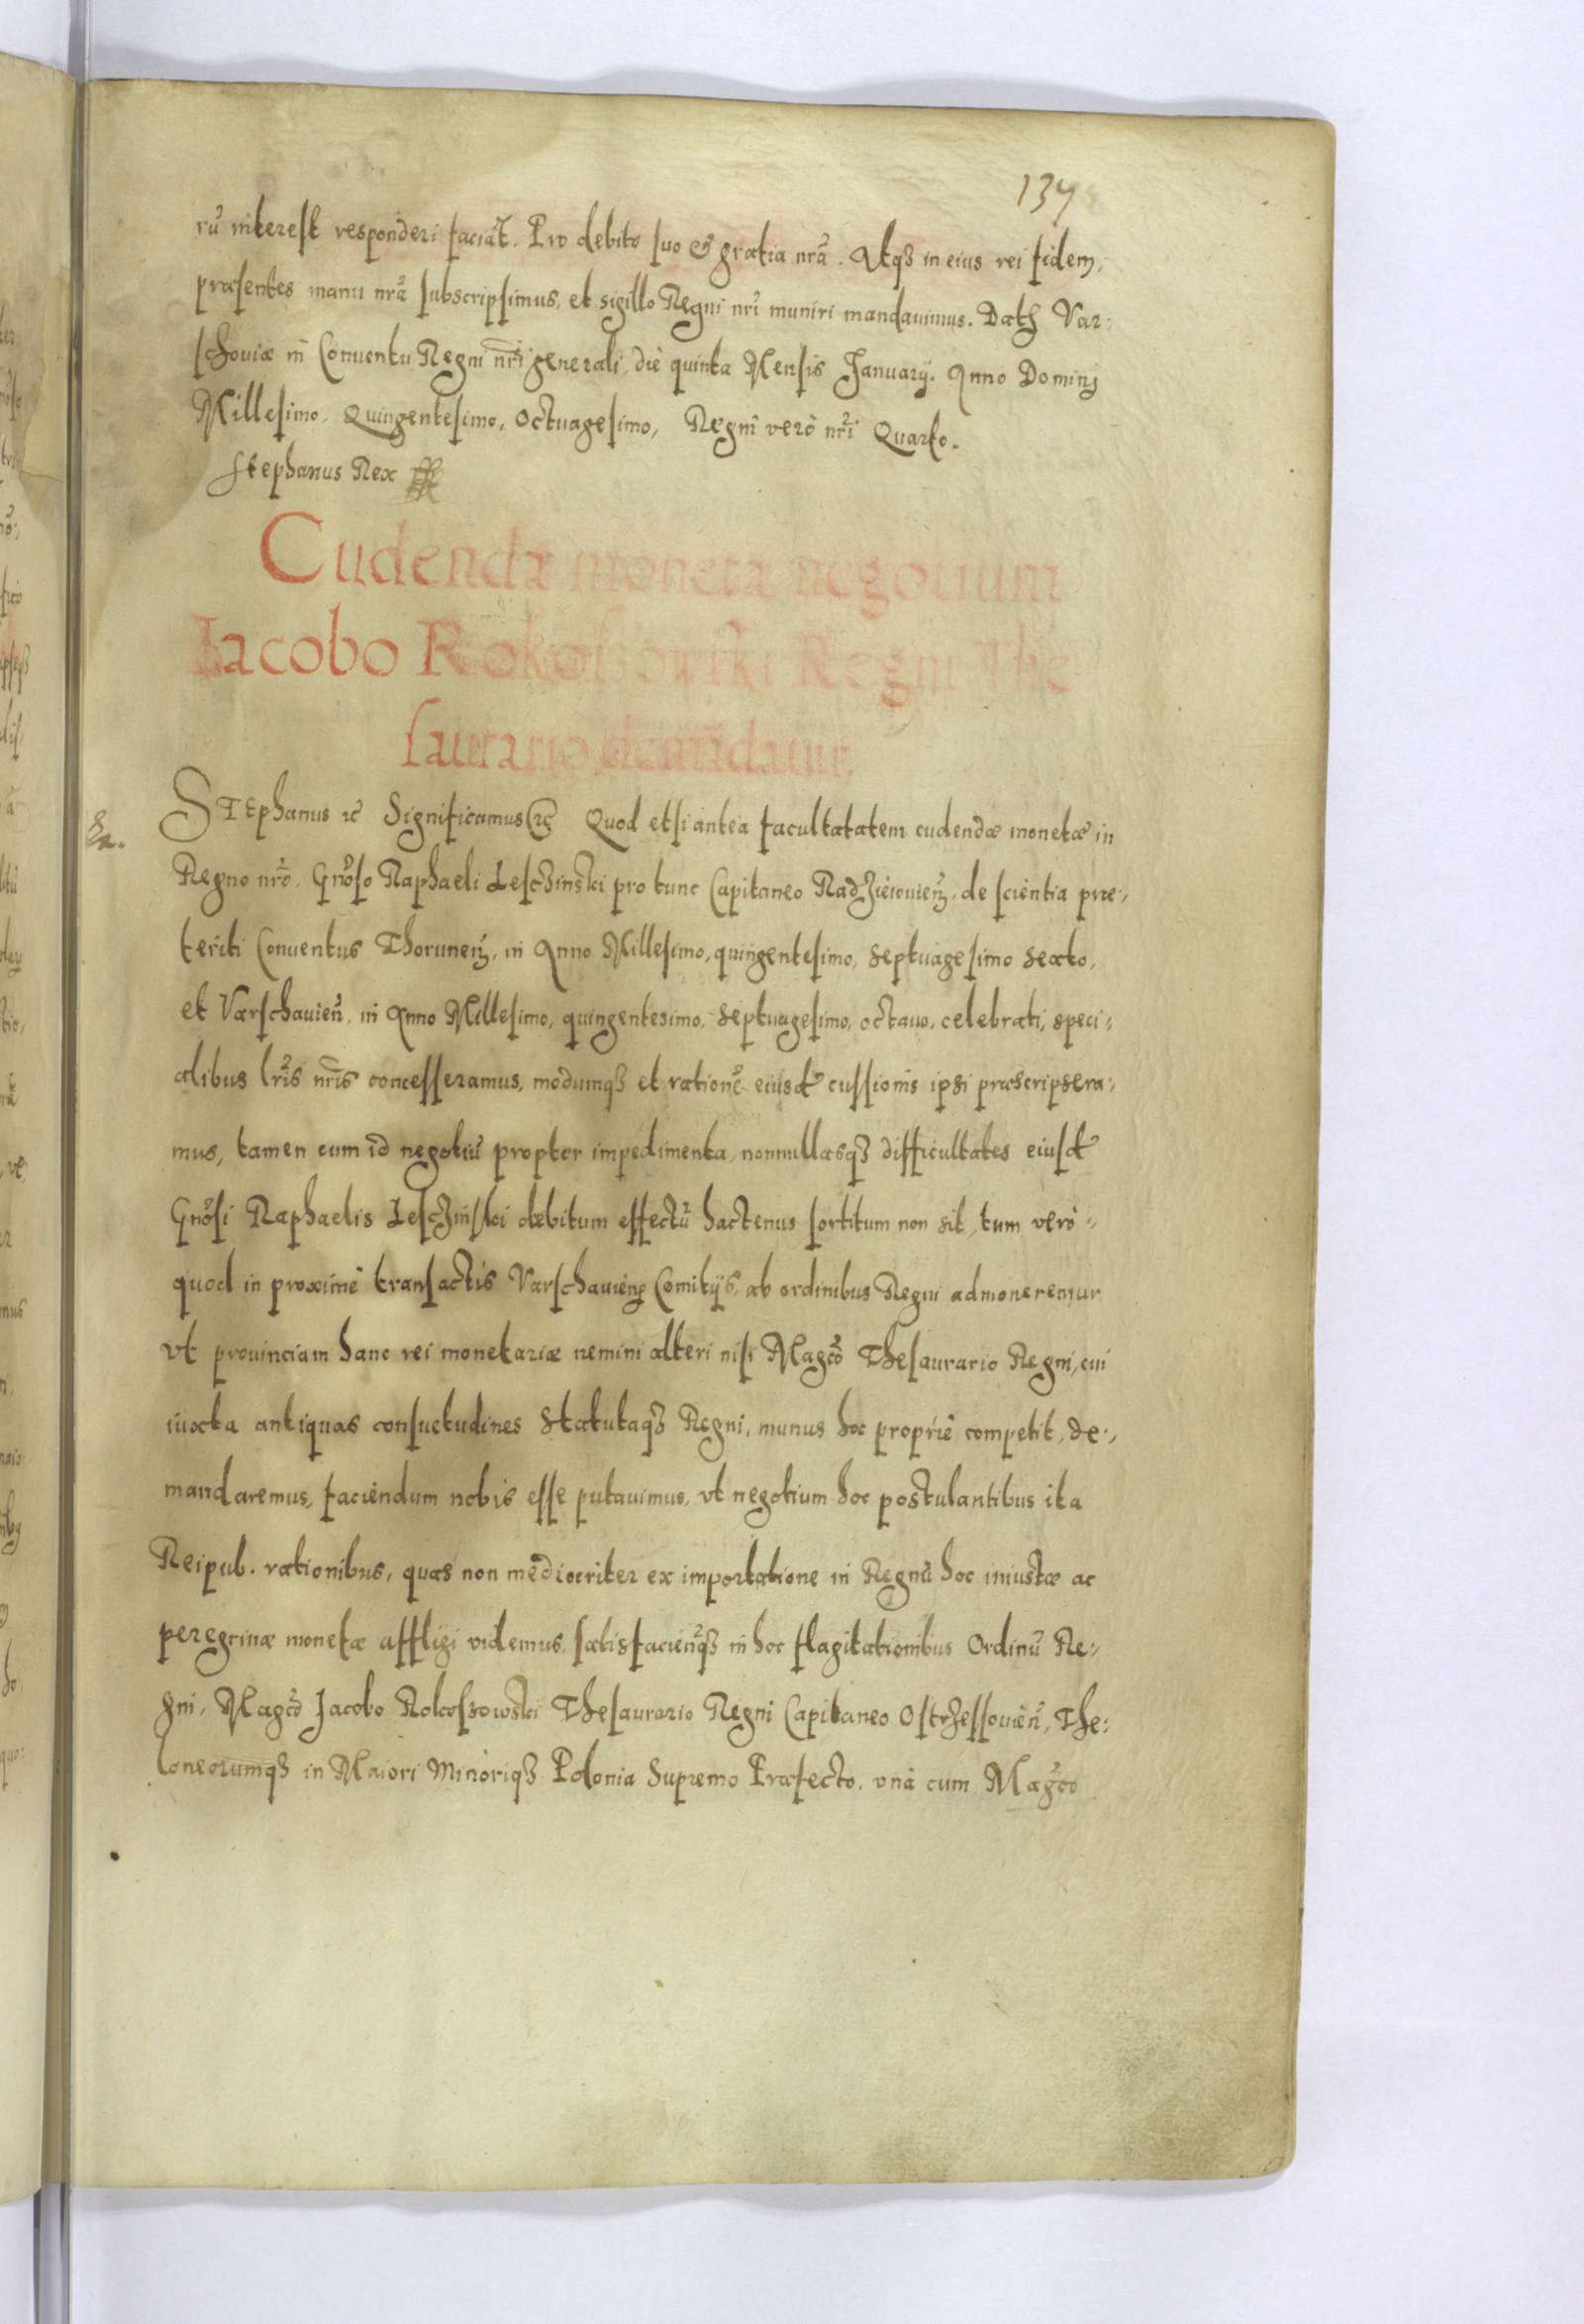 134
rũ interest responderi faciãt. Pro debito suo et gratia nrã. Atqȝ in eius rei fidem,
præsentes manu nrã subscripsimus, et sigillo Regni nrĩ muniri mandauimus. Datȝ Var-
schouiæ in Conuentu Regni nrĩ generali, die quinta Mensis Januarij. Anno Dominj
Millesimo, Quingentesimo, Octuagesimo, Regni verò nrĩ Quarto.
Stephanus Rex
Cudendæ monetæ negotium
Iacobo Rokossowski Regni The
saurario demãdatur.
STEphanus ꝛc Significamus ꝛc Quod etsi antea facultatatem cudendæ monetæ in
Regno nrõ, Gnõso Raphaeli Lesczinski pro tunc Capitaneo Radzieiouieñ, de scientia præ-
teriti Conuentus Thoruneñ, in Anno Millesimo, quingentesimo, septuagesimo sexto,
et Varschauieñ, in Anno Millesimo, quingentesimo, septuagesimo, octauo, celebrati, speci-
alibus lrĩs nrĩs concesseramus, modumqȝ et rationẽ eiusd cussionis ipsi præscripsera-
mus, tamen cum id negotiũ propter impedimenta, nonnullasqȝ difficultates eiusd
Gnõsi Raphaelis Lesczinski debitum effectũ hactenus sortitum non sit, tum verò
quod in proximè transactis Varschauieñ Comitijs, ab ordinibus Regni admoneremur
vt prouinciam hanc rei monetariæ nemini alteri nisi Magcõ Thesaurario Regni, cui
iuxta antiquas consuetudines Statutaqȝ Regni, munus hoc propriè competit, de-
mandaremus, faciendum nobis esse putauimus, vt negotium hoc postulantibus ita
Reipub. rationibus, quas non mediocriter ex importatione in Regnũ hoc iniustæ ac
peregrinæ monetæ affligi videmus, satisfacieñqȝ in hoc flagitationibus Ordinũ Re-
gni, Magcõ Jacobo Rokossowski Thesaurario Regni Capitaneo Ostrzessouieñ, The-
loneorumqȝ in Maiori Minoriqȝ Polonia Supremo Præfecto, vnà cum Magcõ